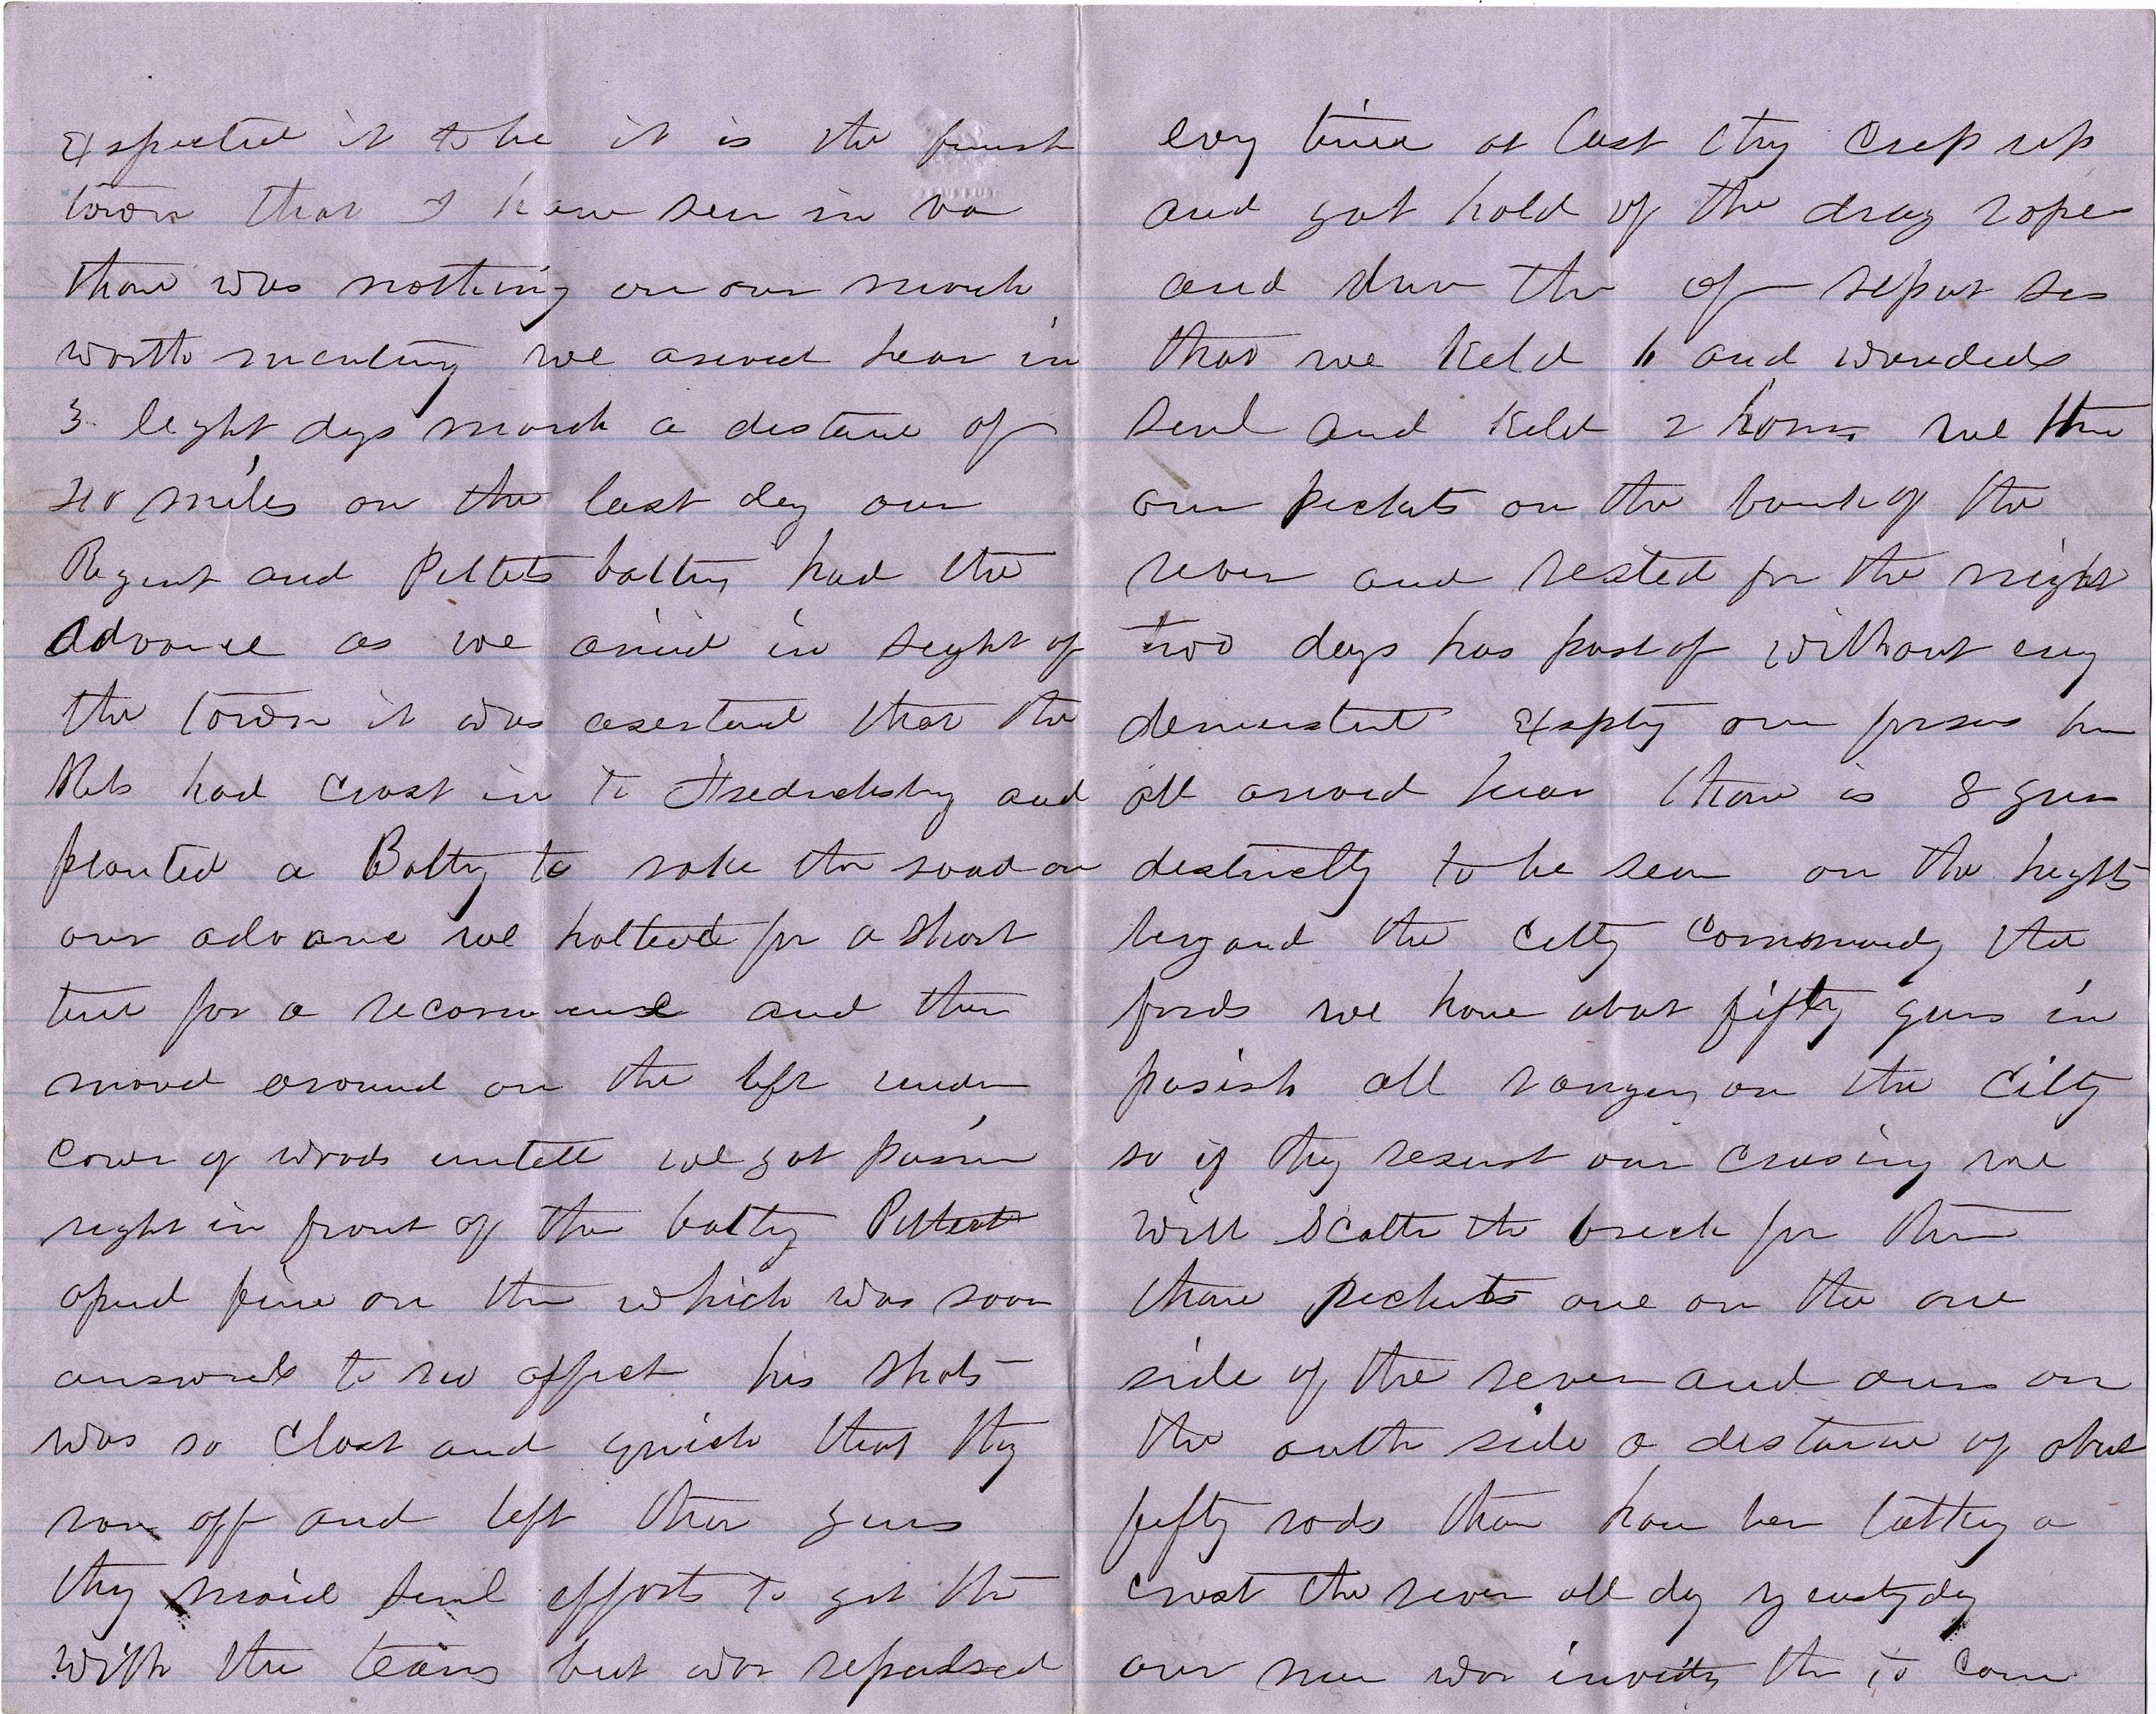 Expected it to be it is the finest
town that I have seen in va
thare was nothing on our march
worth menting we arived hear in
3 light days march a distanc of
40 miles on the last day our
Regimt and Pettets battry had the
advance as we arived in sight of
the town it was asertand that the
Rebs had crost in to Fredricksbrg and
planted a Battry to rake the road on
our advance we halteed for a short
time for a and then
moved around on the left under
cover of woods untell we got
right in front of the battry Pettets
opend fire on them which was soon
answered to no affect his shots
was so clost and quick that they
ran off and left thar guns
they maid sevrl efforts to get them
with the teams but was repealsed
evry time at last they crep up
and got hold of the drag ropes
and the of report ses
that we keld 6 and wounded
sevrl and keld 2 horses we then
our peckets on the bank of the
rever and rested for the night
two days has past of without eny
demenstrt our forses have
all arived hear thare is 8 guns
destinctly to be seen on the heghts
beyand the citty commandg the
fords we have about fifty guns in
posish all rangeing on the citty
so if they resest our crosing we
will scatter the breck for them
thare peckets are on the one
side of the rever and ours on
the outhr side a distance of about
fifty rods thare have ben a
crost the rever all day yeustrday
our men was inviting them to come